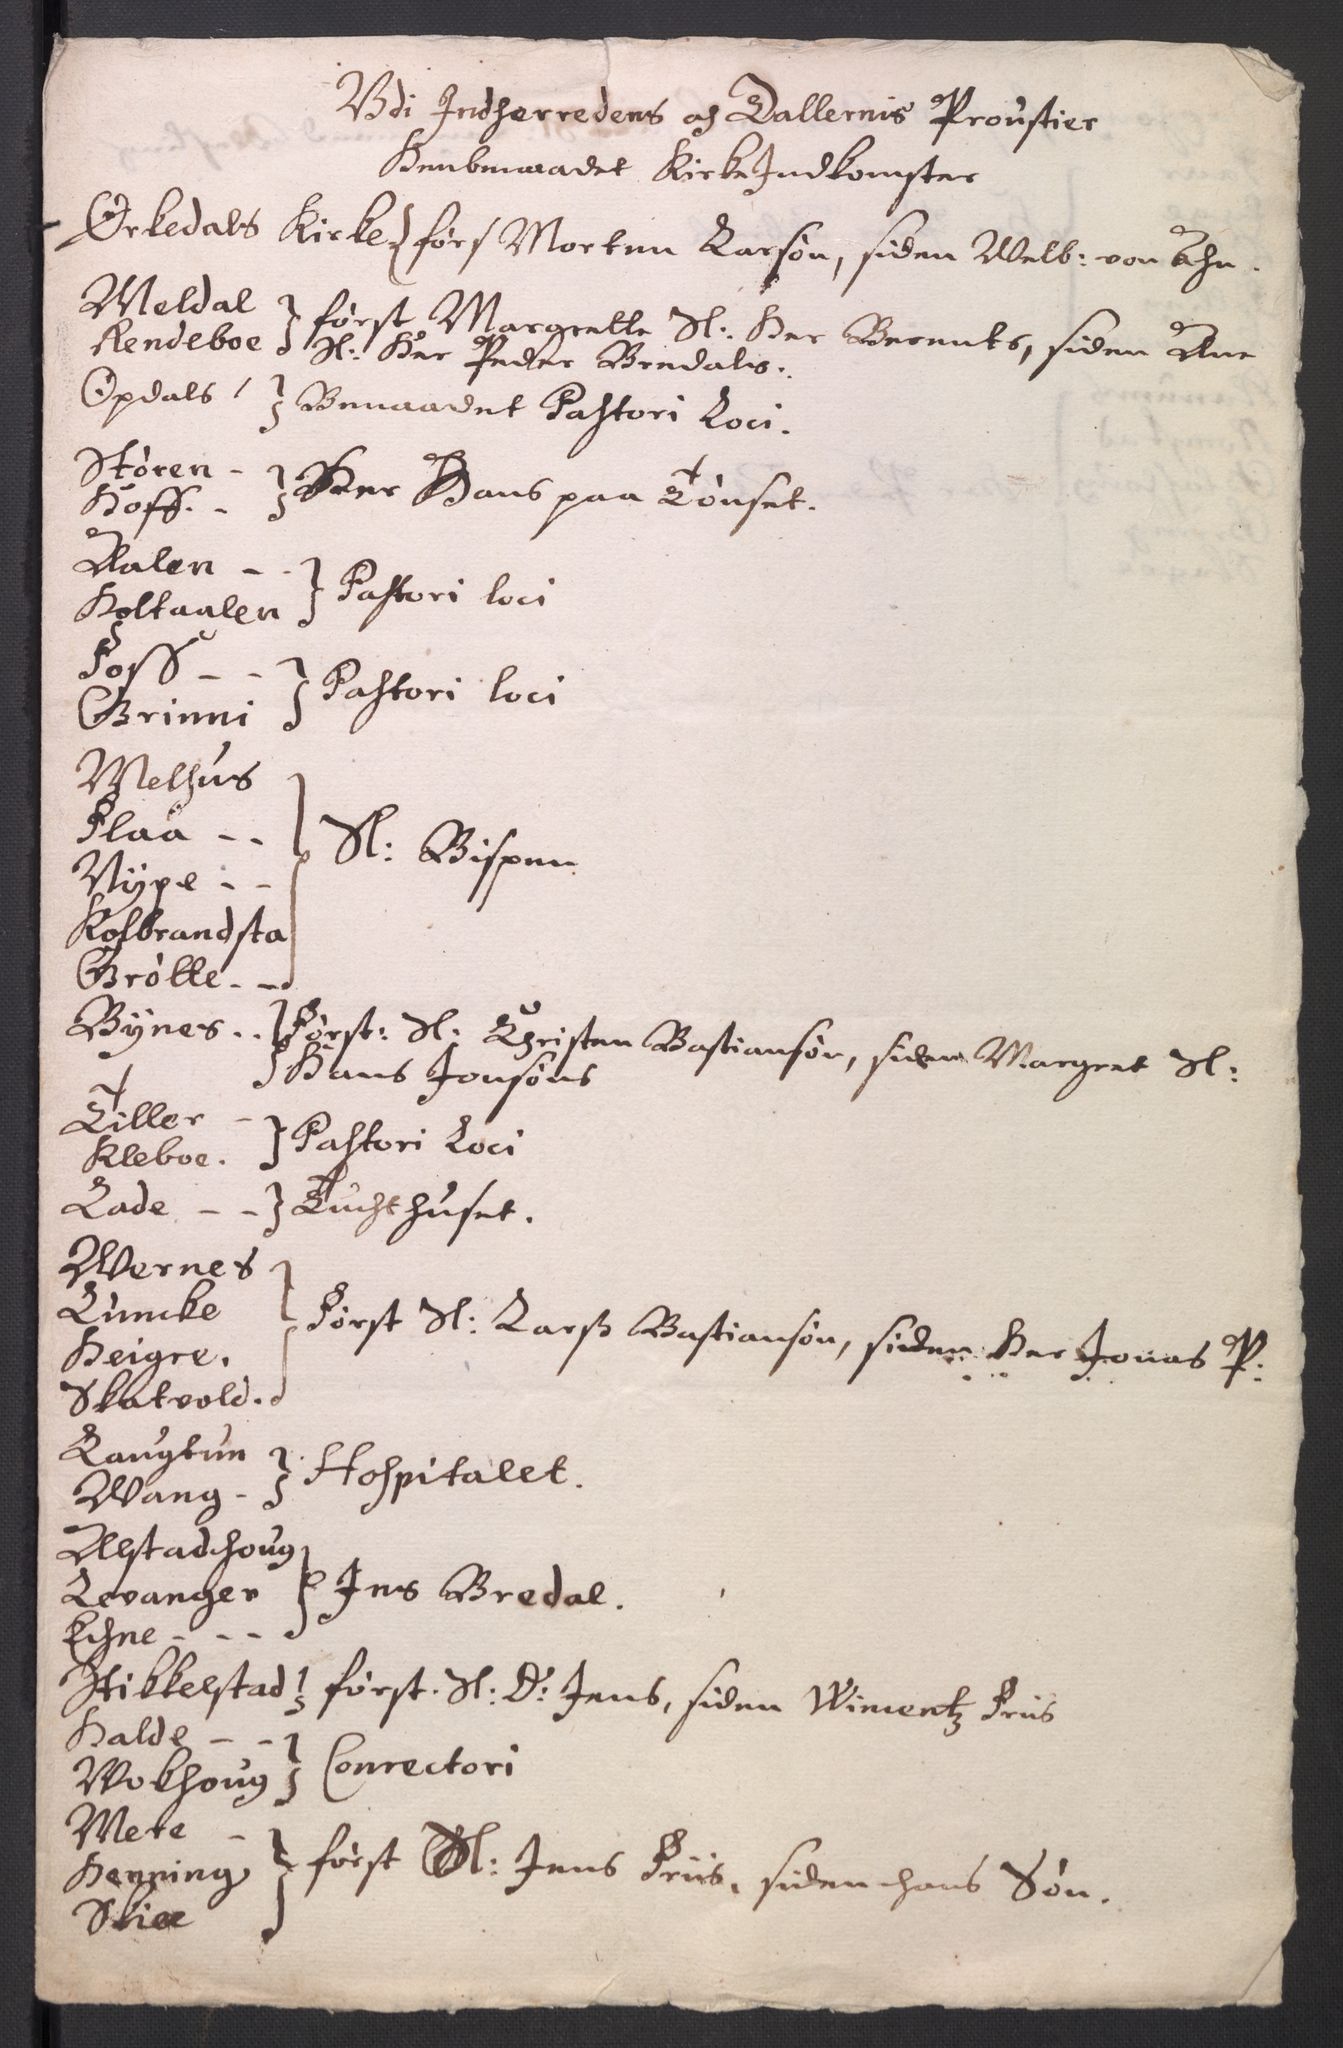 Vdi Indherredens og Dallernis Proustier
Henbenaadet Kirke Indkomster
Ørkedals Kirke } førs Morten Larsøn, siden Welb: von Ahn.
Meldal
Rendeboe } først Margrette Sl: Her Berents, siden Ane
Sl: Her Peder Bredals.
Opdals } Benaadet Pastori Loci.
Støren -
Hoff. - } Her Hans paa Tønset.
Aalen - -
Holtaalen } Pastori loci
Foss - -
Grinni } Pastori loci
Melhus
Flaa - -
Vÿpe - -
Kolbrandsta
Brøtte - - } Sl: Bispen
Bÿnes - - } Først: Sl: Christen Bastiansøn, siden Margret Sl:
Hans Jonsøns
Tiller -
Kleboe. } Pastori Loci
Lade - - } Tuchthuset.
Wernes
Luncke
Heigre.
Skatvold. } Først Sl: Larss Bastiansøn, siden Her Jonas P:
Laugtun
Wang - } Hospitalet.
Alstadhoug
Levanger
Echne - - - } Jens Bredal.
Stikkelstad } først. Sl: D: Jens, siden Wimentz Friis
Halde - -
Wokhoug } Conrectori
Mere -
Henning
Skiee } først Sl: Jens Friis, siden hans Søn.